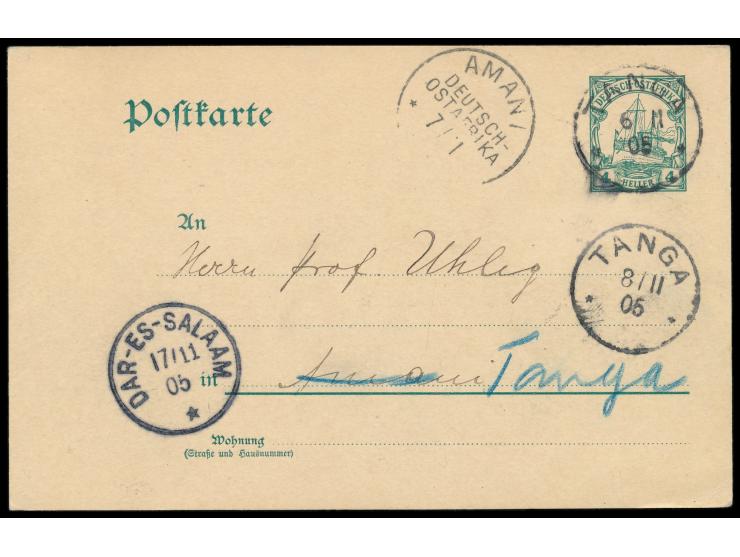 AMANI
DEUTSCH-
OSTAFRIKA
7/11
DEUTSCH-OSTAFRIKA
6/11
05
4 4
HELLER
Postkarte
An
Herrn Prof. Uhlig
TANGA
8/11
05
DAR-ES-SALAAM
17/11
05
in Amani Tanga
Wohnung
(Straße und Hausnummer)